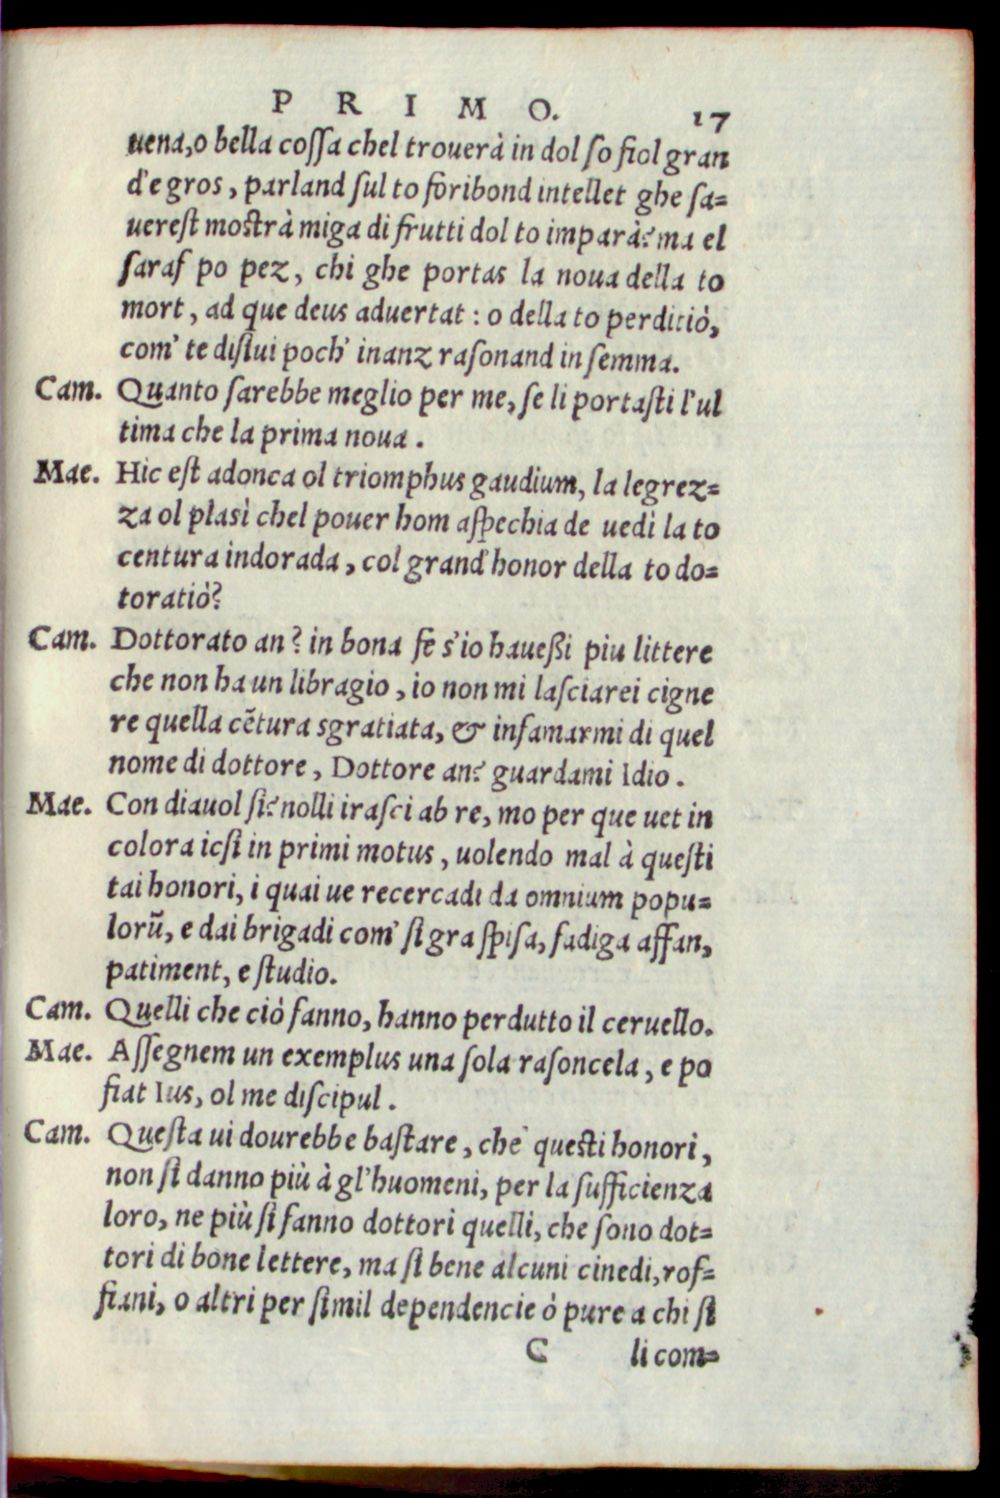 PRIMO. 17
uena, o bella cossa chel trouerà in dol so fiol gran
d'e gros, parland sul to foribond intellet ghe sa=
uerest mostrà miga di frutti dol to imparà? ma el
saraf po pez, chi ghe portas la noua della to
mort, ad que deus aduertat: o della to perditiò,
com' te dislui poch' inanz rasonand insemma.
Cam. Quanto sarebbe meglio per me, se li portasti l'ul
tima che la prima noua.
Mae. Hic est adonca ol triomphus gaudium, la legrez=
za ol plasì chel pouer hom aspechia de uedì la to
centura indorada, col grand'honor della to do=
toratiò?
Cam. Dottorato an? in bona fe s'io hauessi piu littere
che non ha un libragio, io non mi lasciarei cigne
re quella cẽtura sgratiata, & infamarmi di quel
nome di dottore, Dottore an? guardami Idio.
Mae. Con diauol si? nolli irasci ab re, mo per que uet in
colora icsi in primi motus, uolendo mal à questi
tai honori, i quai ue recercadi da omnium popu=
lorũ, e dai brigadi com' si gra spisa, fadiga affan,
patiment, e studio.
Cam. Quelli che ciò fanno, hanno perdutto il ceruello.
Mae. Assegnem un exemplus una sola rasoncela, e po
fiat Ius, ol me discipul.
Cam. Questa ui dourebbe bastare, che questi honori,
non si danno più à gl'huomeni, per la sufficienza
loro, ne più si fanno dottori quelli, che sono dot=
tori di bone lettere, ma si bene alcuni cinedi, rof=
fiani, o altri per simil dependencie ò pure a chi si
C li com=